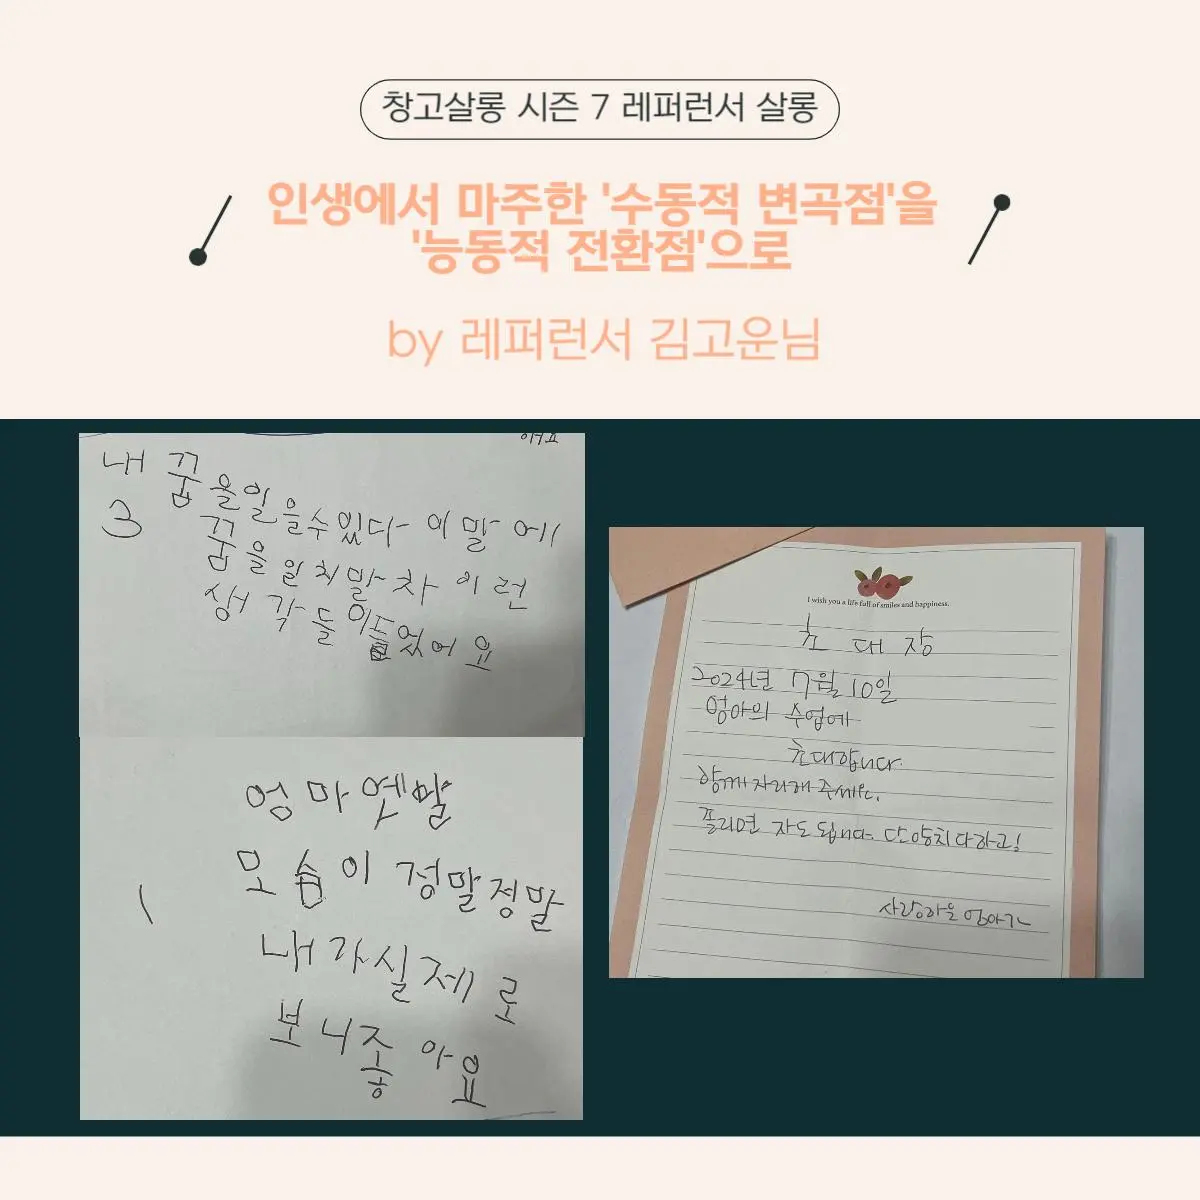 창고살롱 시즌 7 레퍼런서 살롱
인생에서 마주한 '수동적 변곡점'을
'능동적 전환점'으로
by 레퍼런서 김고운님
해요
내 꿈을일을수있다 이 말 에
3 꿈을 일치말자 이런
생각들이들었어요
엄마옛말
모습이 정말정말
1
내가실제로
보니좋아요
I wish you a life full of smiles and happiness.
초대장
2024년 7월 10일
엄마의 수업에
초대합니다.
함께 자리해 주세요.
졸리면 자도 됩니다. 단 양치 다하고!
사랑하는 엄마가